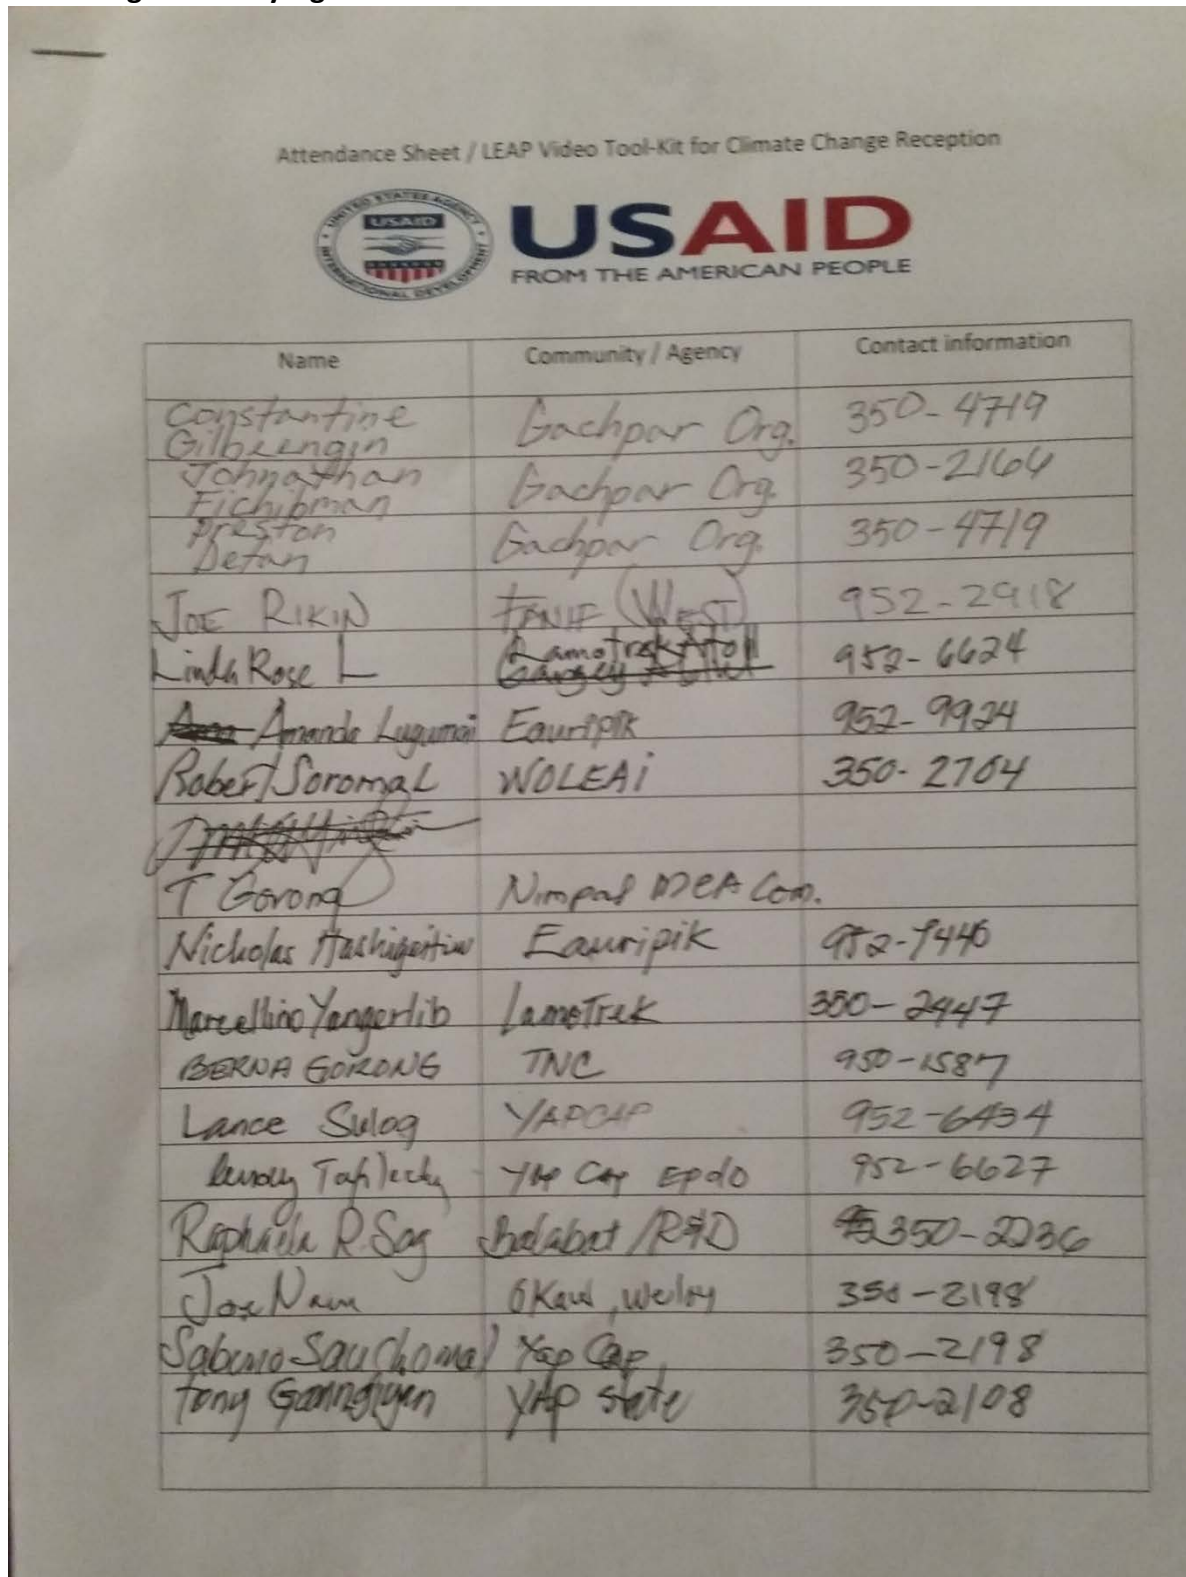 Attendance Sheet / LEAP Video Tool-Kit for Climate Change Reception
UNITED STATES AGENCY
USAID
INTERNATIONAL DEVELOPMENT
USAID
FROM THE AMERICAN PEOPLE
Name Community / Agency Contact information
Constantine
Gilbeengin Gachpar Org. 350-4719
Johnathan
Fichibman Gachpar Org. 350-2164
Preston
Defan Gachpar Org. 350-4719
JOE RIKIN FANIF (WEST) 952-2918
Linda Rose L Lamotrek Atoll 952-6624
Amanda Lugumai Eauripik 952-9924
Robert Soromal WOLEAi 350-2704
T Gorong Nimpal MCA Com.
Nicholas Eauripik
Marcellino Yangerlib LamoTrek 350-2447
BERNA GORONG TNC 950-1587
Lance Sulog YAPCAP 952-6434
Yap Cap EPDO 952-6627
Raphaela R. Sog Balabat / R&D 350-2236
Joe Nam Okaw, Weloy 350-2198
Sabino Sauchomal Yap Cap, 350-2198
Tony YAP state 350-2108